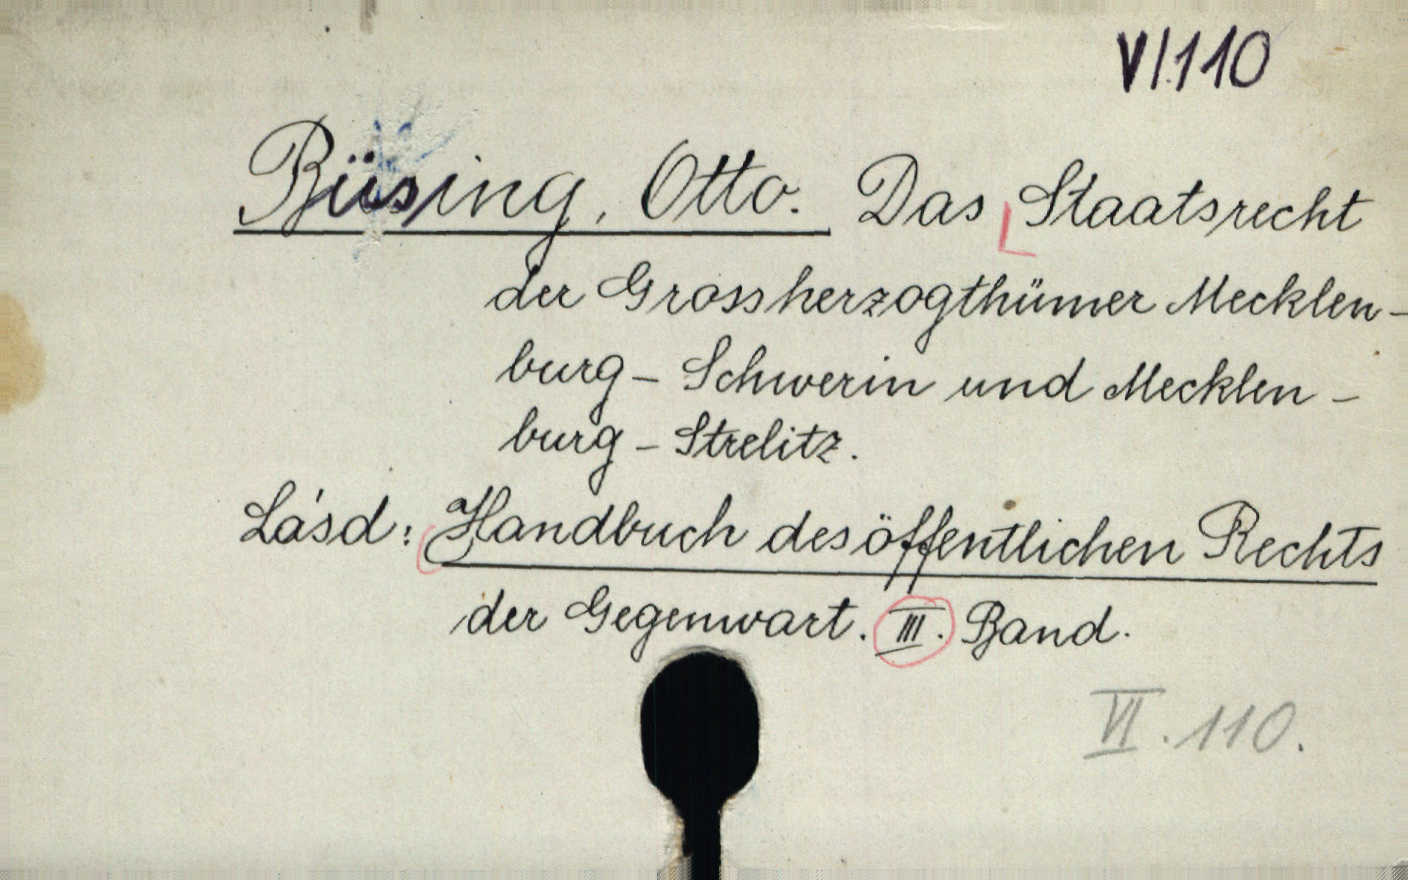 VI.110
Büsing, Otto. Das Staatsrecht
der Grossherzogthümer Mecklen-
burg - Schwerin und Mecklen -
burg - Strelitz.
Lásd: Handbuch des öffentlichen Rechts
der Gegenwart. III. Band.
VI. 110.